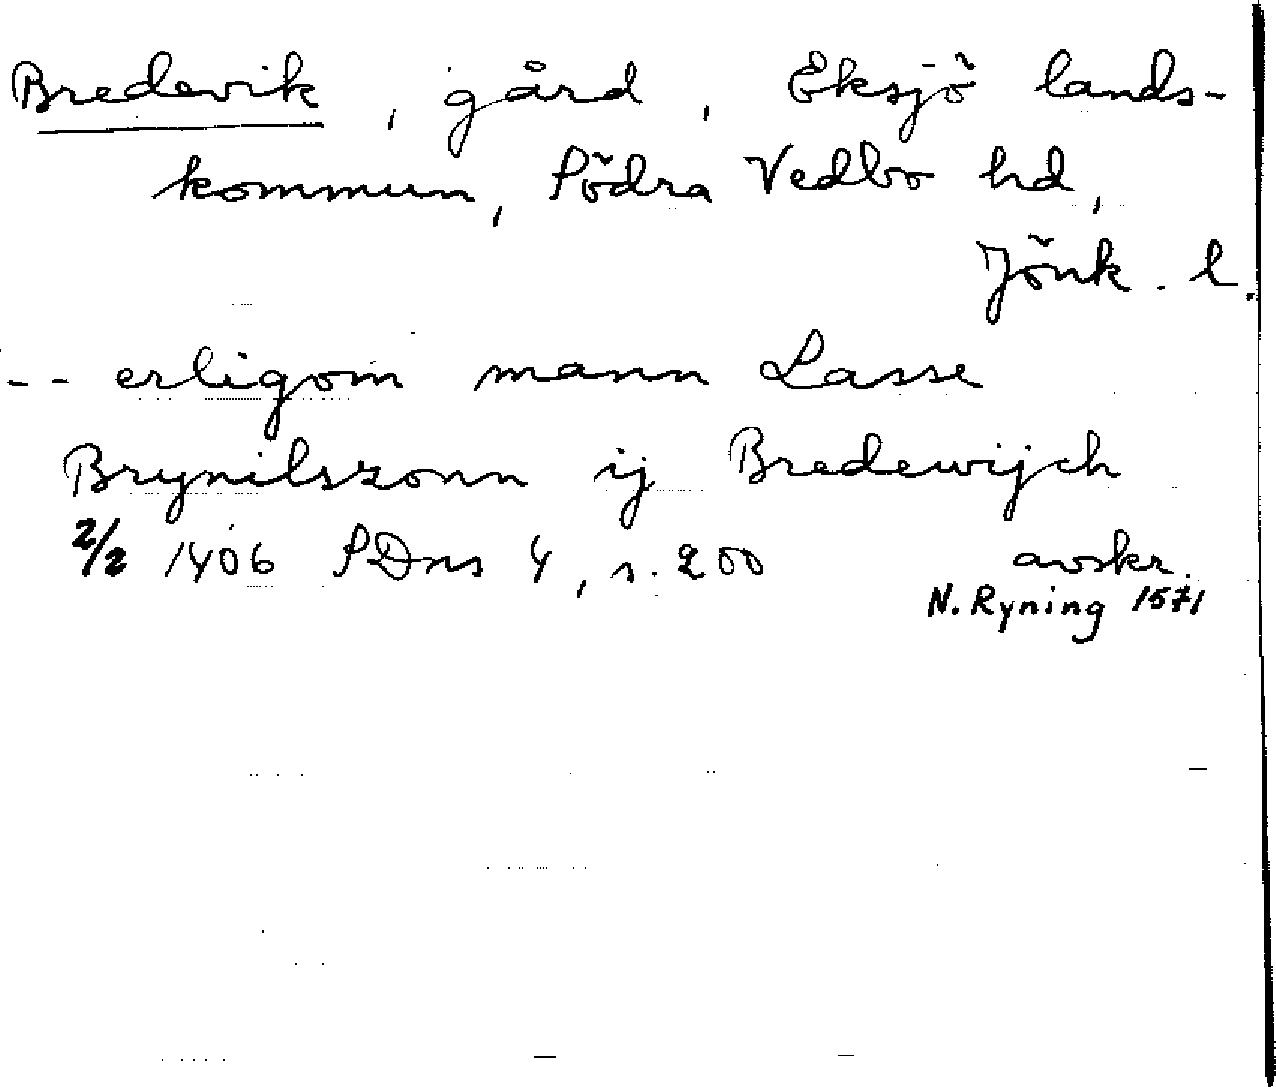 Bredevik, gård, Eksjö lands-
kommun, Södra Vedbo hd,
Jönk. l.
-- erligom mann Lasse
Brynilszonn ij Bredewijch
2/2 1406 SDns 4, s. 200 avskr.
N. Ryning 1571